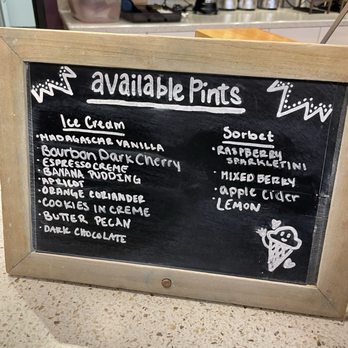 available Pints
Ice Cream
• MADAGASCAR VANILLA
Bourbon Dark Cherry
• ESPRESSO CREME
• BANANA PUDDING
• APRICOT
• ORANGE CORIANDER
• COOKIES IN CREME
• BUTTER PECAN
• DARK CHOCOLATE
Sorbet
• RASPBERRY
SPARKLETINI
• MIXED BERRY
• apple Cider
• LEMON